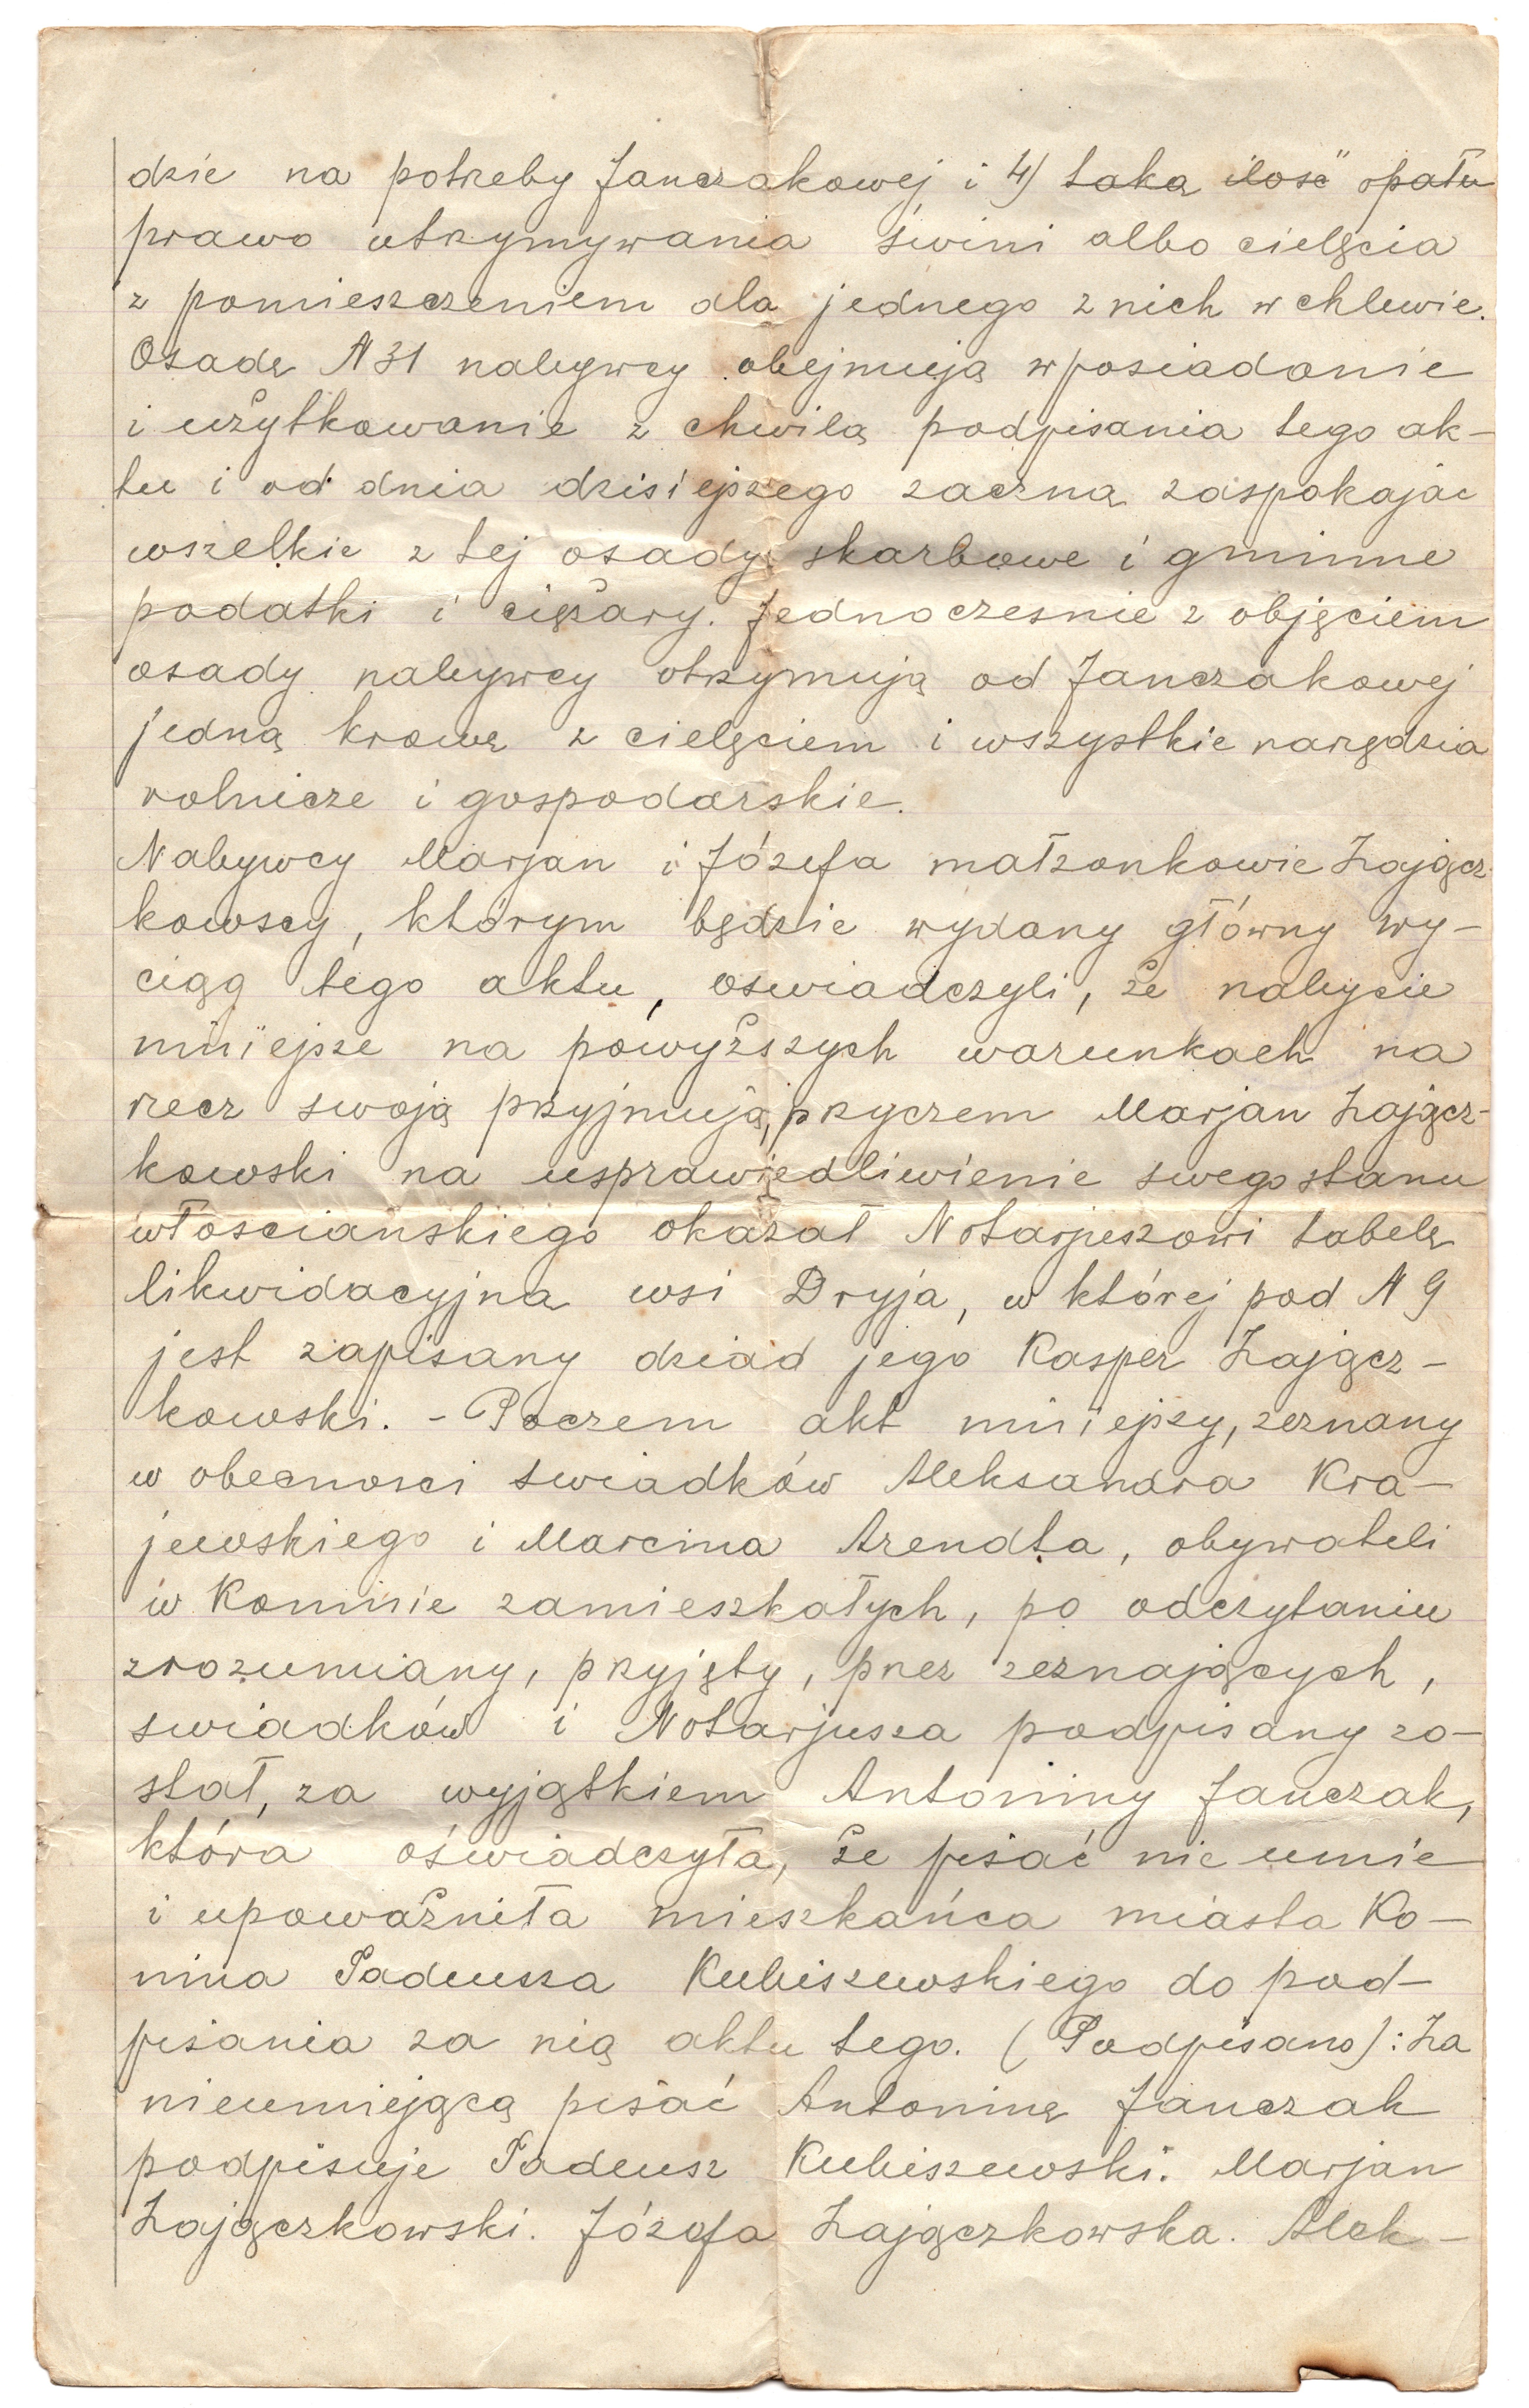 dzie na potrzeby Janczakowej i 4) taką ilość opału
prawo utrzymywania świni albo cielęcia
z pomieszczeniem dla jednego z nich w chlewie.
Osadę N 31 nabywcy obejmują w posiadanie
i użytkowanie z chwilą podpisania tego ak-
tu i od dnia dzisiejszego zaczną zaspokajać
wszelkie z tej osady skarbowe i gminne
podatki i ciężary. Jednocześnie z objęciem
osady nabywcy otrzymują od Janczakowej
jedną krowę z cielęciem i wszystkie narzędzia
rolnicze i gospodarskie.
Nabywcy Marjan i Józefa małżonkowie Zającz-
kowscy, którym będzie wydany główny wy-
ciąg tego aktu, oświadczyli, że nabycie
niniejsze na powyższych warunkach na
rzecz swoją przyjmują, przyczem Marjan Zającz-
kowski na usprawiedliwienie swego stanu
włościańskiego okazał Notarjuszowi tabelę
likwidacyjną wsi Dryja, w której pod N 9
jest zapisany dziad jego Kasper Zającz-
kowski. - Poczem akt niniejszy, zeznany
w obecności świadków Aleksandra Kra-
jewskiego i Marcina Arendta, obywateli
w Koninie zamieszkałych, po odczytaniu
zrozumiany, przyjęty, przez zeznających,
świadków i Notarjusza podpisany zo-
stał, za wyjątkiem Antoniny Janczak,
która oświadczyła, że pisać nie umie
i upoważniła mieszkańca miasta Ko-
nina Tadeusza Kubiszewskiego do pod-
pisania za nią aktu tego. (Podpisano): Za
nieumiejącą pisać Antoninę Janczak
podpisuje Tadeusz Kubiszewski. Marjan
Zajączkowski. Józefa Zajączkowska. Alek-